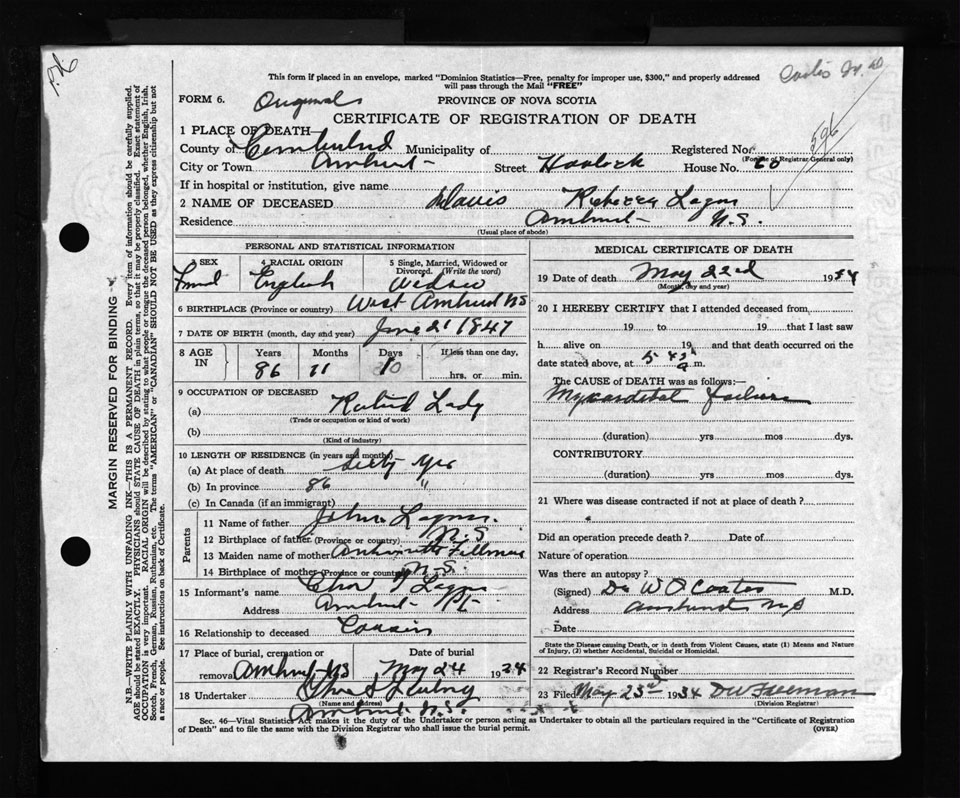 This form if placed in an envelope, marked "Dominion Statistics—Free, penalty for improper use, $300," and properly addressed
will pass through the Mail "FREE"
FORM 6. Original
PROVINCE OF NOVA SCOTIA
CERTIFICATE OF REGISTRATION OF DEATH
596
1 PLACE OF DEATH
County of Cumberland Municipality of Registered No.
(For use of Registrar General only)
City or Town Amherst Street Havelock House No. 60
If in hospital or institution, give name
2 NAME OF DECEASED Davis Rebecca Logan
Residence Amherst N.S.
(Usual place of abode)
PERSONAL AND STATISTICAL INFORMATION
3 SEX 4 RACIAL ORIGIN 5 Single, Married, Widowed or
Divorced. (Write the word)
English Widow
6 BIRTHPLACE (Province or country) West Amherst NS
7 DATE OF BIRTH (month, day and year) June 21 1847
8 AGE IN Years Months Days If less than one day,
86 11 hrs. or min.
9 OCCUPATION OF DECEASED
(a) Retired Lady
(Trade or occupation or kind of work)
(b)
(Kind of industry)
10 LENGTH OF RESIDENCE (in years and months)
(a) At place of death Sixty Yrs
(b) In province 86 "
(c) In Canada (if an immigrant)
Parents
11 Name of father John Logan
12 Birthplace of father (Province or country) N.S.
13 Maiden name of mother Fillmore
14 Birthplace of mother (Province or country) N.S.
15 Informant's name Logan
Address Amherst
16 Relationship to deceased Cousin
17 Place of burial, cremation or Date of burial
removal Amherst NS May 24 1934
18 Undertaker
(Name and address)
Amherst N.S.
MEDICAL CERTIFICATE OF DEATH
19 Date of death May 22nd 1934
(Month, day and year)
20 I HEREBY CERTIFY that I attended deceased from
19 to 19 that I last saw
h alive on 19 and that death occurred on the
date stated above, at m.
The CAUSE OF DEATH was as follows:—
Myocardial failure
(duration) yrs mos dys.
CONTRIBUTORY
(duration) yrs mos dys.
21 Where was disease contracted if not at place of death?
Did an operation precede death? Date of
Nature of operation
Was there an autopsy?
(Signed) Dr W O Coates M.D.
Address Amherst NS
Date
State the Disease causing Death, or in death from Violent Causes, state (1) Means and Nature
of Injury, (2) whether Accidental, Suicidal or Homicidal.
22 Registrar's Record Number
23 Filed May 23rd 1934 Freeman
(Division Registrar)
Sec. 46—Vital Statistics Act makes it the duty of the Undertaker or person acting as Undertaker to obtain all the particulars required in the "Certificate of Registration
of Death" and to file the same with the Division Registrar who shall issue the burial permit. (OVER)
MARGIN RESERVED FOR BINDING
N.B.—WRITE PLAINLY WITH UNFADING INK—THIS IS A PERMANENT RECORD. Every item of information should be carefully supplied.
AGE should be stated EXACTLY. PHYSICIANS should STATE CAUSE OF DEATH in plain terms, so that it may be properly classified. Exact statement of
OCCUPATION is very important. RACIAL ORIGIN will be described by stating to what people or tongue the deceased person belonged, whether English, Irish,
Scotch, French, German, Russian, Ruthenian, etc. The terms "AMERICAN" or "CANADIAN" SHOULD NOT BE USED as they express citizenship but not
a race or people. See instructions on back of Certificate.